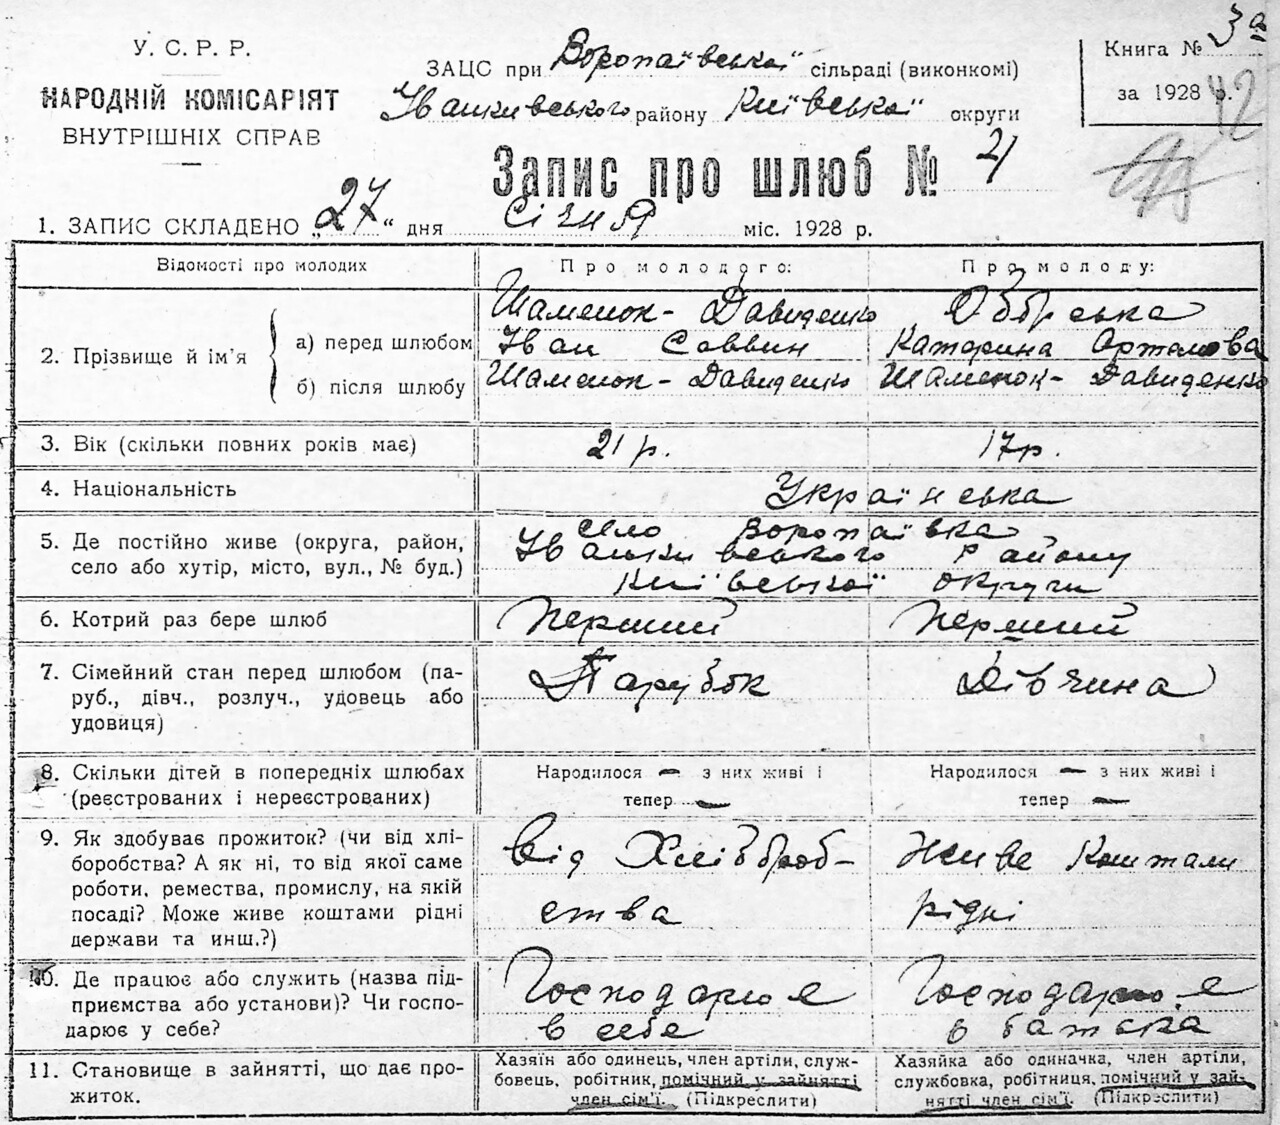 У. С. Р. Р.
НАРОДНІЙ КОМІСАРІЯТ
ВНУТРІШНІХ СПРАВ
ЗАЦС при Воропаївської сільраді (виконкомі)
Іванкивського району Київської округи
Книга № 3а
за 1928 р.
42
Запис про шлюб № 21
1. ЗАПИС СКЛАДЕНО „27“ дня Січня міс. 1928 р.
Відомості про молодих
Про молодого:
Про молоду:
2. Прізвище й ім'я
а) перед шлюбом
Шаменок-Давиденко
Іван Саввин
Катерина Артемова
б) після шлюбу
Шаменок-Давиденко
Шаменок-Давиденко
3. Вік (скільки повних років має)
21 р.
17 р.
4. Національність
Українська
5. Де постійно живе (округа, район,
село або хутір, місто, вул., № буд.)
село Воропаївка
Іванкивського району
Київської округи
6. Котрий раз бере шлюб
Перший
Перший
7. Сімейний стан перед шлюбом (па-
руб., дівч., розлуч., удовець або
удовиця)
Парубок
Дівчина
8. Скільки дітей в попередніх шлюбах
(реєстрованих і нереєстрованих)
Народилося — з них живі і
тепер —
Народилося — з них живі і
тепер —
9. Як здобуває прожиток? (чи від хлі-
боробства? А як ні, то від якої саме
роботи, ремества, промислу, на якій
посаді? Може живе коштами рідні
держави та инш.?)
Від Хлібороб-
ства
Живе Коштами
рідні
10. Де працює або служить (назва під-
приємства або установи)? Чи госпо-
дарює у себе?
Господарює
в себе
Господарює
в батька
11. Становище в зайнятті, що дає про-
житок.
Хазяїн або одинець, член артіли, служ-
бовець, робітник, помічний у зайнятті
член сім'ї. (Підкреслити)
Хазяйка або одиначка, член артіли,
службовка, робітниця, помічний у зай-
нятті член сім'ї. (Підкреслити)